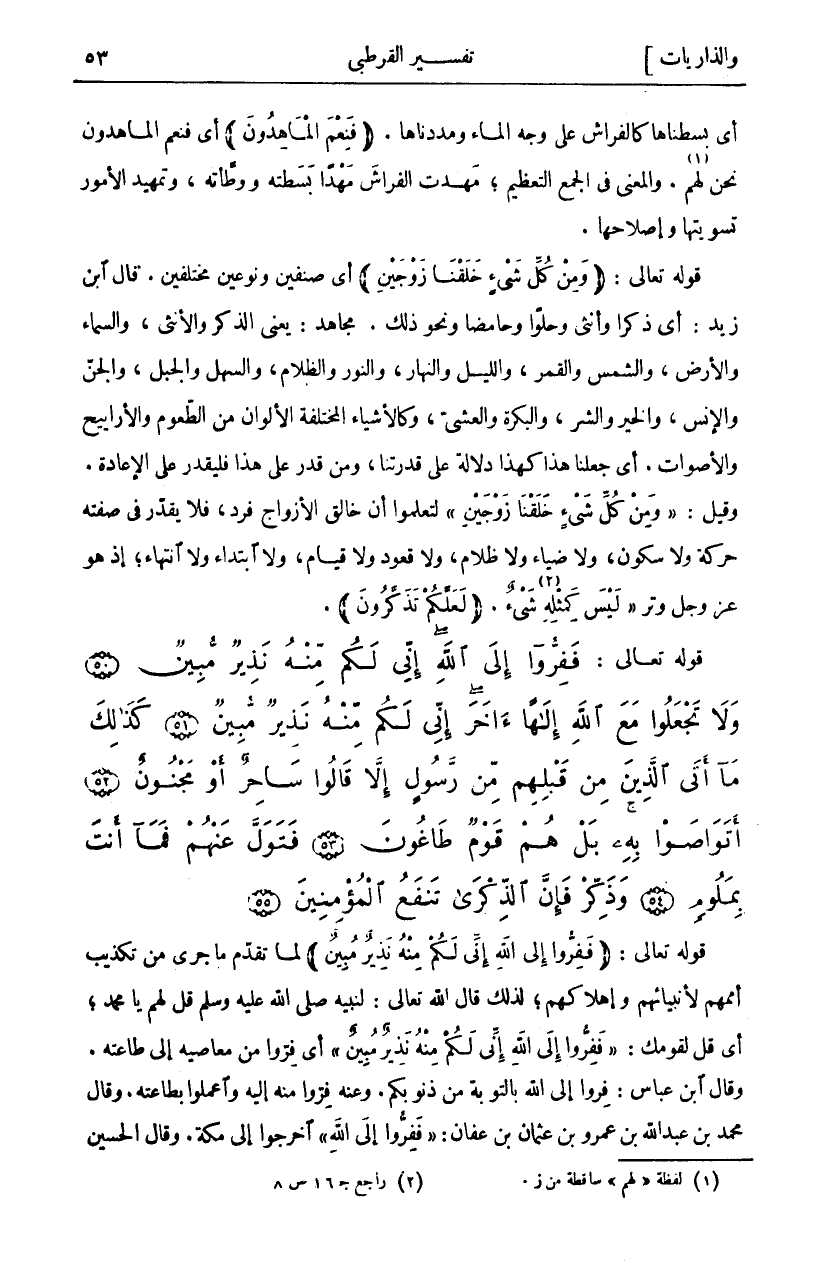 والذاريات ] تفسير القرطبى ٥٣
أى بسطناها كالفراش على وجه الماء ومددناها . ﴿ فَنِعْمَ الْمَاهِدُونَ ﴾ أى فنعم الماهدون
نحن لهم (١) . والمعنى فى الجمع التعظيم ؛ مَهدت الفراشَ مَهْدًا بَسَطته ووطّأته ، وتمهيد الأمور
تسويتها وإصلاحها .
قوله تعالى : ﴿ وَمِنْ كُلِّ شَىْءٍ خَلَقْنَا زَوْجَيْنِ ﴾ أى صنفين ونوعين مختلفين . قال ٱبن
زيد : أى ذكرا وأنثى وحلوًا وحامضا ونحو ذلك . مجاهد : يعنى الذكر والأنثى ، والسماء
والأرض ، والشمس والقمر ، والليل والنهار ، والنور والظلام ، والسهل والجبل ، والجنّ
والإنس ، والخير والشر ، والبكرة والعشىّ ، وكالأشياء المختلفة الألوان من الطّعوم والأراييح
والأصوات . أى جعلنا هذا كهذا دلالة على قدرتنا ، ومن قدر على هذا فليقدر على الإعادة .
وقيل : « وَمِنْ كُلِّ شَىْءٍ خَلَقْنَا زَوْجَيْنِ » لتعلموا أن خالق الأزواج فرد ، فلا يقدّر فى صفته
حركة ولا سكون ، ولا ضياء ولا ظلام ، ولا قعود ولا قيام ، ولا ٱبتداء ولا ٱنتهاء ؛ إذ هو
عز وجل وتر « لَيْسَ كَمِثْلِهِ (٢) شَىْءٌ . ﴿ لَعَلَّكُمْ تَذَكَّرُونَ ﴾ .
قوله تعالى : فَفِرُّوٓا إِلَى ٱللَّهِ ۖ إِنِّى لَكُم مِّنْهُ نَذِيرٌ مُّبِينٌ ۝٥٠
وَلَا تَجْعَلُوا مَعَ ٱللَّهِ إِلَٰهًا ءَاخَرَ ۖ إِنِّى لَكُم مِّنْهُ نَذِيرٌ مُّبِينٌ ۝٥١ كَذَٰلِكَ
مَآ أَتَى ٱلَّذِينَ مِن قَبْلِهِم مِّن رَّسُولٍ إِلَّا قَالُوا سَاحِرٌ أَوْ مَجْنُونٌ ۝٥٢
أَتَوَاصَوْا بِهِۦ ۚ بَلْ هُمْ قَوْمٌ طَاغُونَ ۝٥٣ فَتَوَلَّ عَنْهُمْ فَمَآ أَنتَ
بِمَلُومٍ ۝٥٤ وَذَكِّرْ فَإِنَّ ٱلذِّكْرَىٰ تَنفَعُ ٱلْمُؤْمِنِينَ ۝٥٥
قوله تعالى : ﴿ فَفِرُّوا إِلَى اللَّهِ إِنِّى لَكُمْ مِنْهُ نَذِيرٌ مُبِينٌ ﴾ لما تقدّم ما جرى من تكذيب
أممهم لأنبيائهم وإهلاكهم ؛ لذلك قال الله تعالى : لنبيه صلى الله عليه وسلم قل لهم يا محمد ؛
أى قل لقومك : « فَفِرُّوا إِلَى اللَّهِ إِنِّى لَكُمْ مِنْهُ نَذِيرٌ مُبِينٌ » أى فِرّوا من معاصيه إلى طاعته .
وقال ٱبن عباس : فروا إلى الله بالتوبة من ذنوبكم . وعنه فِرّوا منه إليه وٱعملوا بطاعته . وقال
محمد بن عبدالله بن عمرو بن عثمان بن عفان : « فَفِرُّوا إِلَى اللَّهِ » ٱخرجوا إلى مكة . وقال الحسين
(١) لفظة « لهم » ساقطة من ز . (٢) راجع جـ ١٦ ص ٨